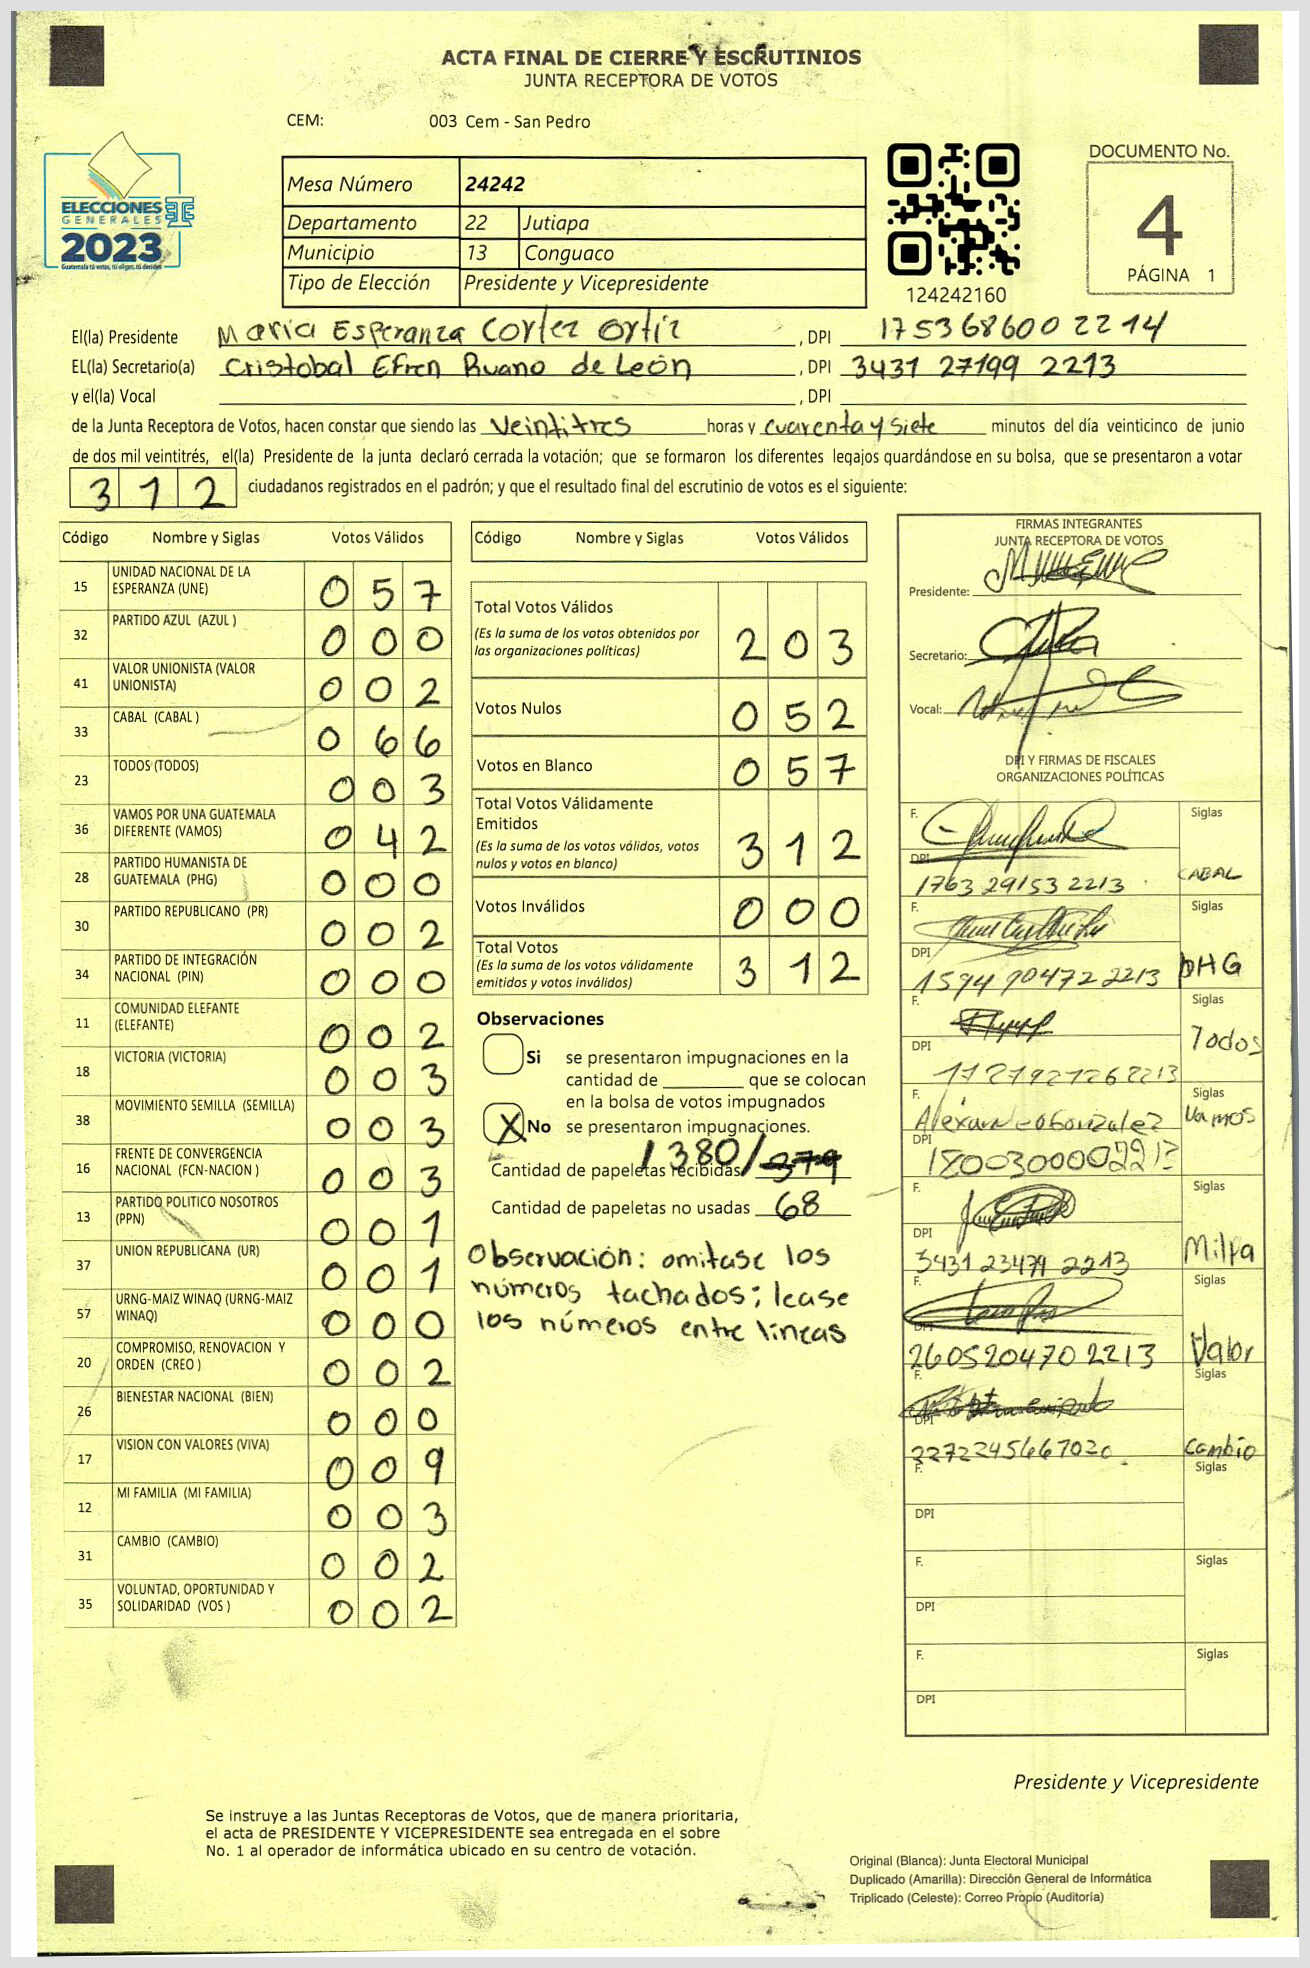 ACTA FINAL DE CIERRE Y ESCRUTINIOS
JUNTA RECEPTORA DE VOTOS
CEM: 003 Cem - San Pedro
ELECCIONES
GENERALES
2023
Guatemala tú votas, tú eliges, tú decides
Mesa Número 24242
Departamento 22 Jutiapa
Municipio 13 Conguaco
Tipo de Elección Presidente y Vicepresidente
124242160
DOCUMENTO No.
4
PÁGINA 1
El(la) Presidente Maria Esperanza Cortez Ortiz , DPI 1753686002214
EL(la) Secretario(a) Cristobal Efren Ruano de León , DPI 3431 27199 2213
y el(la) Vocal , DPI
de la Junta Receptora de Votos, hacen constar que siendo las Veintitres horas y cuarenta y siete minutos del día veinticinco de junio
de dos mil veintitrés, el(la) Presidente de la junta declaró cerrada la votación; que se formaron los diferentes legajos guardándose en su bolsa, que se presentaron a votar
312 ciudadanos registrados en el padrón; y que el resultado final del escrutinio de votos es el siguiente:
Código Nombre y Siglas Votos Válidos
15 UNIDAD NACIONAL DE LA
ESPERANZA (UNE) 057
32 PARTIDO AZUL (AZUL ) 000
41 VALOR UNIONISTA (VALOR
UNIONISTA) 002
33 CABAL (CABAL ) 066
23 TODOS (TODOS) 003
36 VAMOS POR UNA GUATEMALA
DIFERENTE (VAMOS) 042
28 PARTIDO HUMANISTA DE
GUATEMALA (PHG) 000
30 PARTIDO REPUBLICANO (PR) 002
34 PARTIDO DE INTEGRACIÓN
NACIONAL (PIN) 000
11 COMUNIDAD ELEFANTE
(ELEFANTE) 002
18 VICTORIA (VICTORIA) 003
38 MOVIMIENTO SEMILLA (SEMILLA) 003
16 FRENTE DE CONVERGENCIA
NACIONAL (FCN-NACION ) 003
13 PARTIDO POLITICO NOSOTROS
(PPN) 001
37 UNION REPUBLICANA (UR) 001
57 URNG-MAIZ WINAQ (URNG-MAIZ
WINAQ) 000
20 COMPROMISO, RENOVACION Y
ORDEN (CREO ) 002
26 BIENESTAR NACIONAL (BIEN) 000
17 VISION CON VALORES (VIVA) 009
12 MI FAMILIA (MI FAMILIA) 003
31 CAMBIO (CAMBIO) 002
35 VOLUNTAD, OPORTUNIDAD Y
SOLIDARIDAD (VOS ) 002
Código Nombre y Siglas Votos Válidos
Total Votos Válidos
(Es la suma de los votos obtenidos por
las organizaciones políticas) 203
Votos Nulos 052
Votos en Blanco 057
Total Votos Válidamente
Emitidos
(Es la suma de los votos válidos, votos
nulos y votos en blanco) 312
Votos Inválidos 000
Total Votos
(Es la suma de los votos válidamente
emitidos y votos inválidos) 312
Observaciones
Si se presentaron impugnaciones en la
cantidad de ________ que se colocan
en la bolsa de votos impugnados
X No se presentaron impugnaciones.
Cantidad de papeletas recibidas /380/ 379
Cantidad de papeletas no usadas 68
Observación: omitase los
números tachados; lease
los números entre lineas
FIRMAS INTEGRANTES
JUNTA RECEPTORA DE VOTOS
Presidente:
Secretario:
Vocal:
DPI Y FIRMAS DE FISCALES
ORGANIZACIONES POLÍTICAS
F. Siglas
DPI 1763 29153 2213 CABAL
F. Siglas
DPI 1594 90472 2213 PHG
F. Siglas
DPI Todos
F. Alexander Gonzalez Siglas
DPI 1800300002213 Vamos
F. Siglas
DPI 3431 23479 2213 Milfa
F. Siglas
DPI 2605204702213 Valor
F. Siglas
DPI 2272245667020 Cambio
F. Siglas
DPI
F. Siglas
DPI
F. Siglas
DPI
Presidente y Vicepresidente
Se instruye a las Juntas Receptoras de Votos, que de manera prioritaria,
el acta de PRESIDENTE Y VICEPRESIDENTE sea entregada en el sobre
No. 1 al operador de informática ubicado en su centro de votación.
Original (Blanca): Junta Electoral Municipal
Duplicado (Amarilla): Dirección General de Informática
Triplicado (Celeste): Correo Propio (Auditoría)